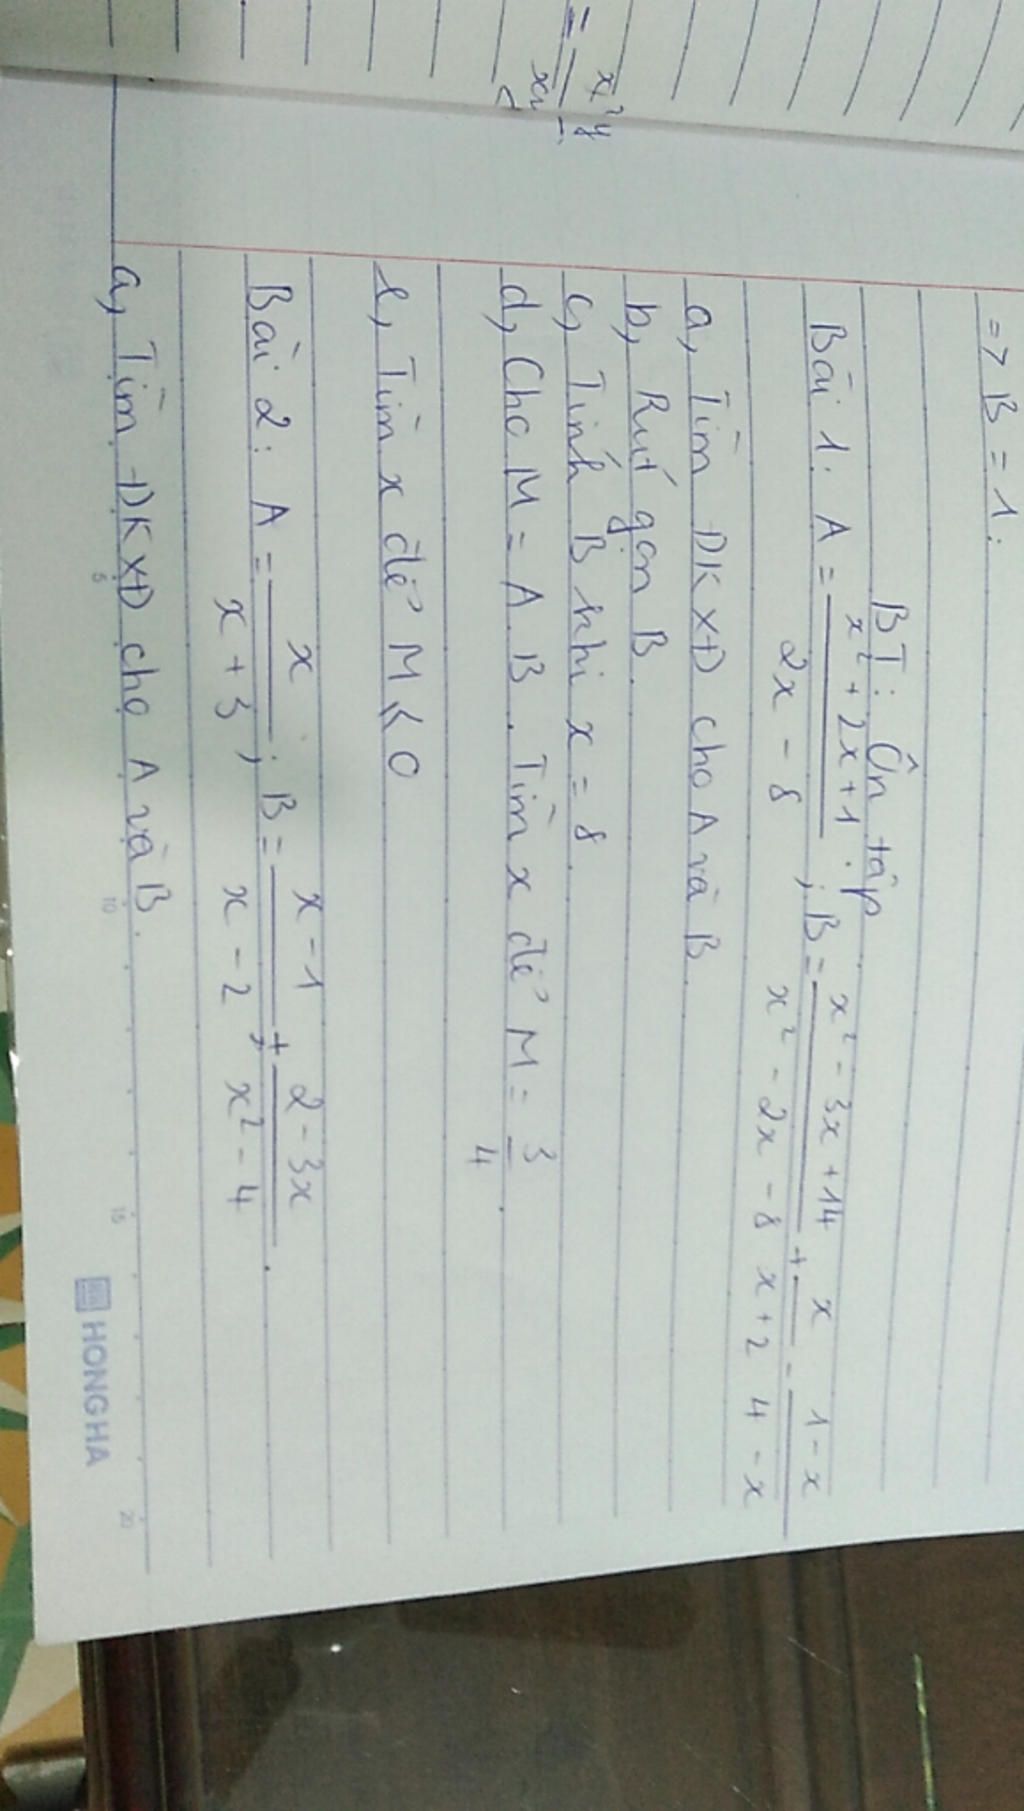 = x²y
=> B = 1.
BT: Ôn tập
Bài 1: A = (x² + 2x + 1)/(2x - 8) ; B = (x² - 3x + 14)/(x² - 2x - 8) + x/(x + 2) - (1 - x)/(4 - x)
a, Tìm ĐKXĐ cho A và B.
b, Rút gọn B.
c, Tính B khi x = 8.
d, Cho M = A.B. Tìm x để M = 3/4.
e, Tìm x để M < 0
Bài 2: A = x/(x + 3) ; B = (x - 1)/(x - 2) + (2 - 3x)/(x² - 4).
a, Tìm ĐKXĐ cho A và B.
5 10 15 20
HONG HA